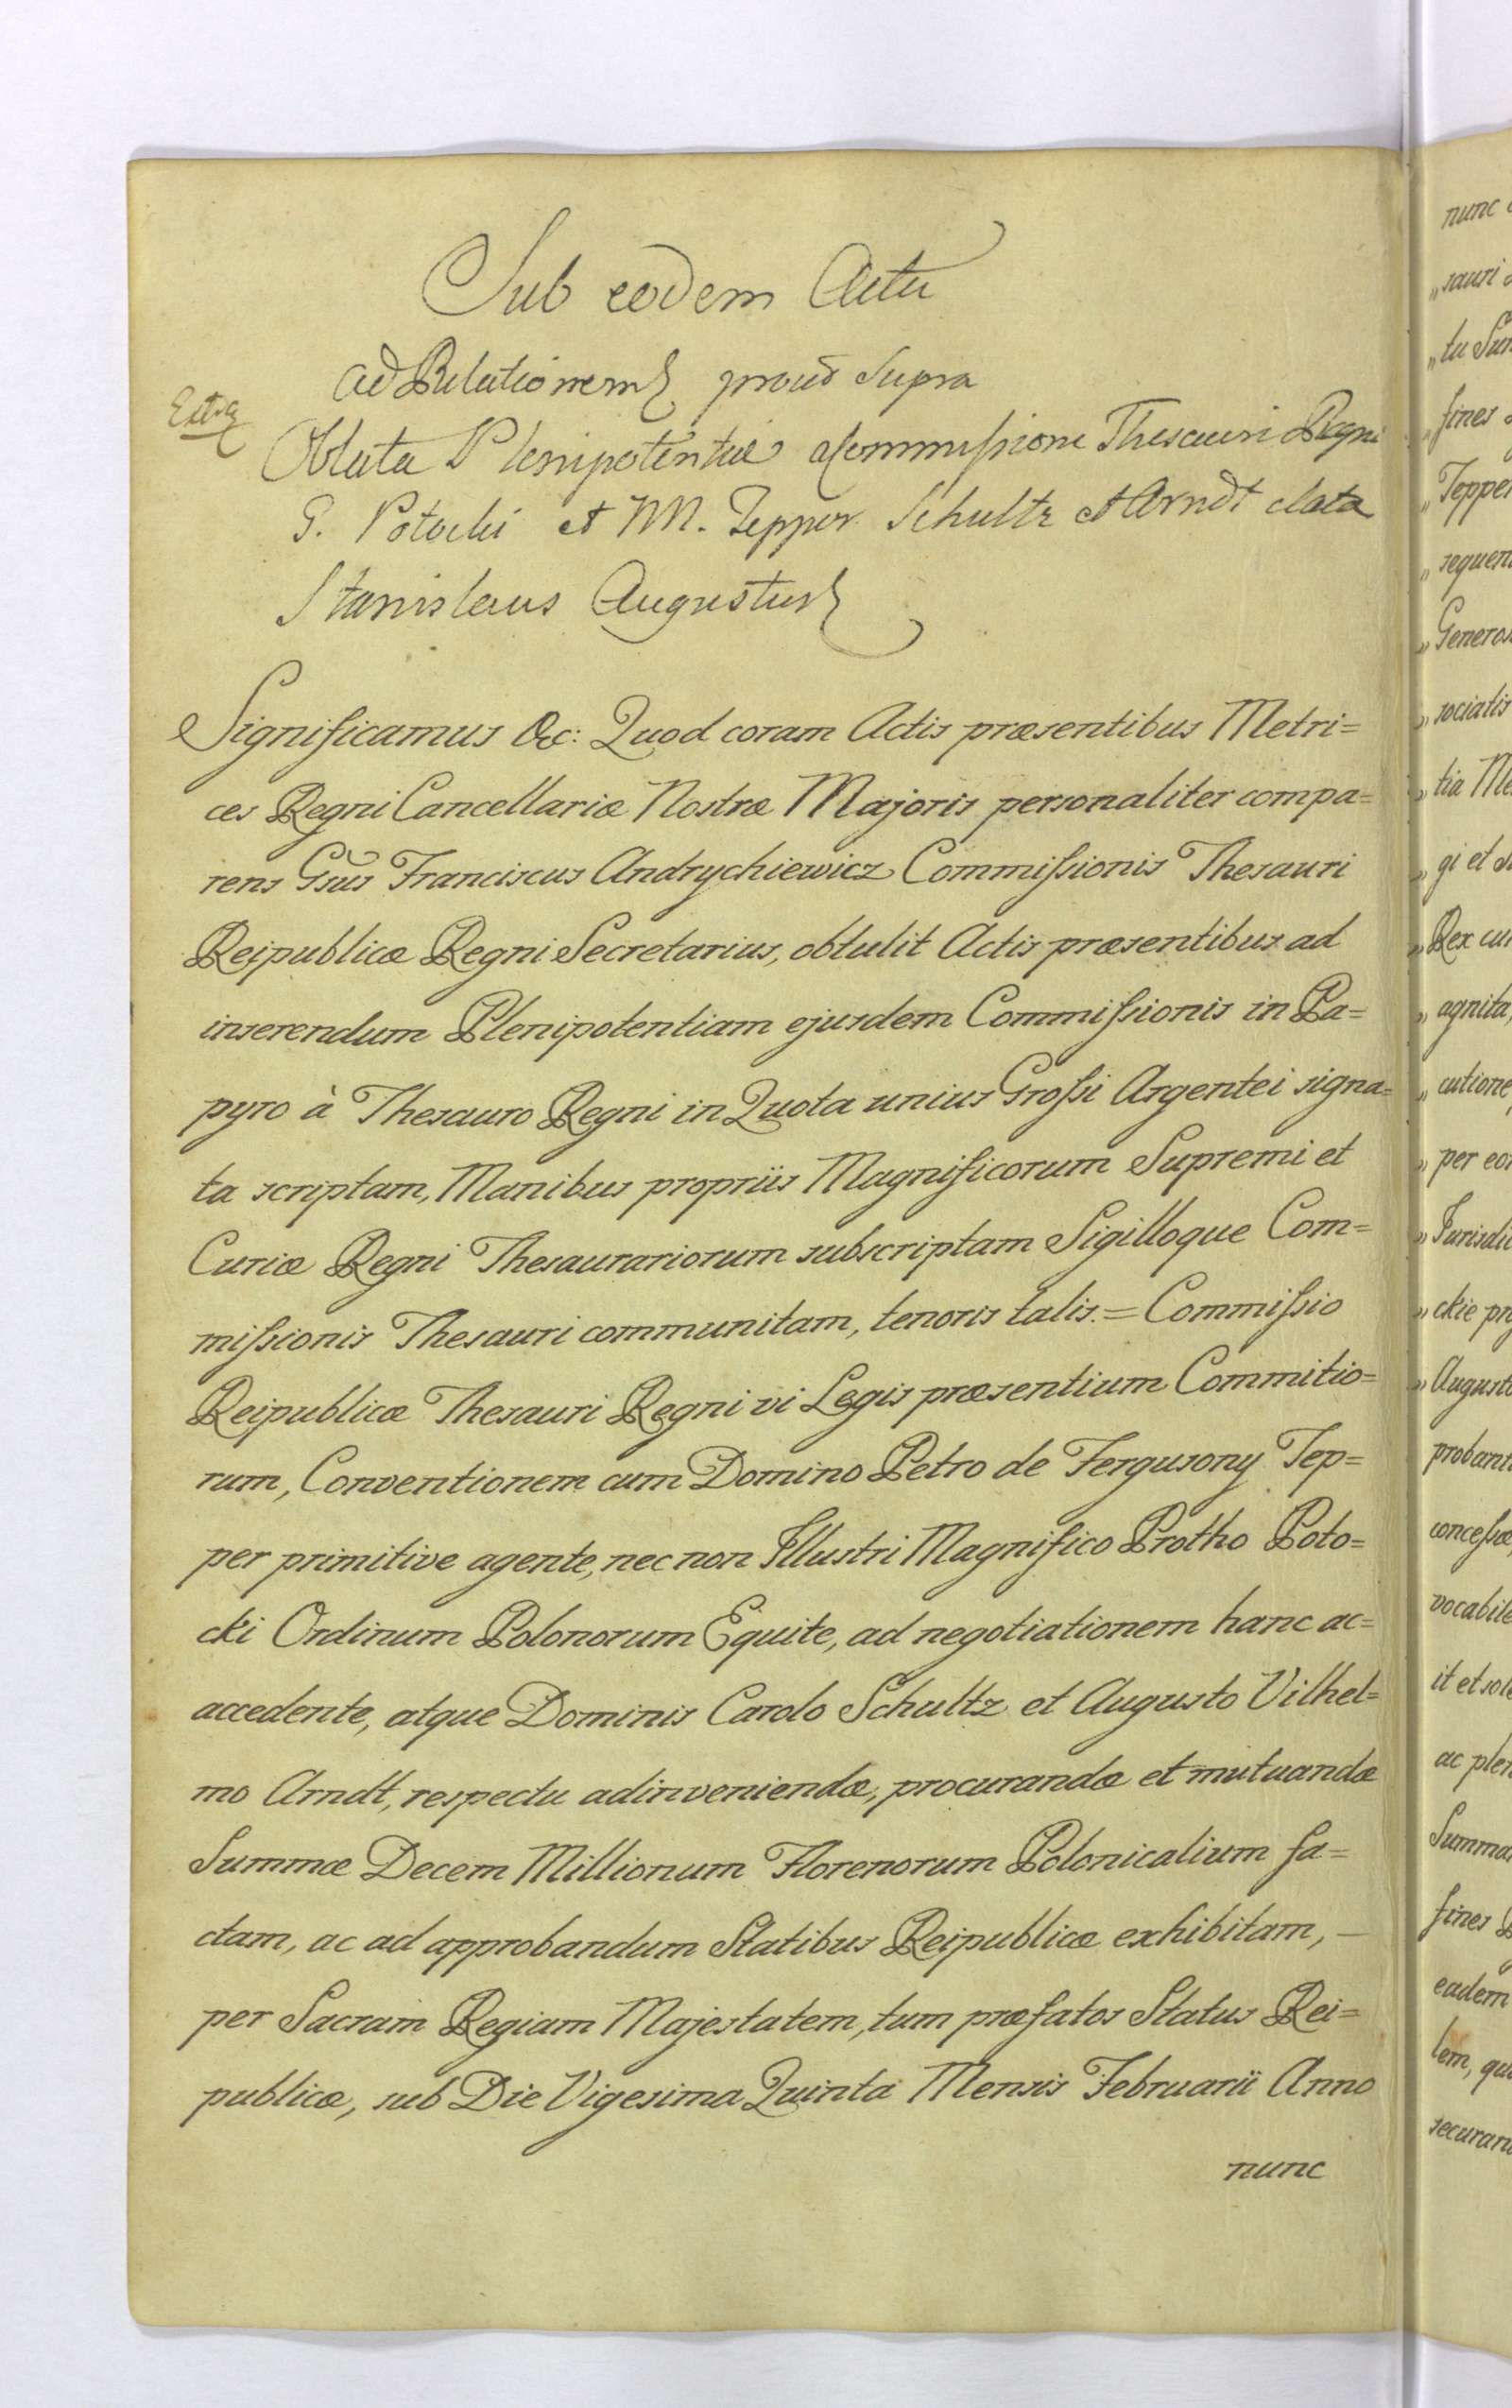 Sub eodem Actu
ad Relationem prout supra
Extra
Oblata Plenipotentiæ a Commissione Thesauri Regni
G. Potocki et M. Tepper Schultz et Arndt data
Stanislaus Augustus
Significamus &c: Quod coram Actis præsentibus Metri=
ces Regni Cancellariæ Nostræ Majoris personaliter compa=
rens Gsus Franciscus Andrychiewicz Commissionis Thesauri
Reipublicæ Regni Secretarius, obtulit Actis præsentibus ad
inserendum Plenipotentiam ejusdem Commissionis in Pa=
pyro à Thesauro Regni in Quota unius Grossi Argentei signa=
ta scriptam, Manibus propriis Magnificorum Supremi et
Curiæ Regni Thesaurariorum subscriptam Sigilloque Com=
missionis Thesauri communitam, tenoris talis. = Commissio
Reipublicæ Thesauri Regni vi Legis præsentium Commitio=
rum, Conventionem cum Domino Petro de Fergusony Tep=
per primitive agente, nec non Illustri Magnifico Protho Poto=
cki Ordinum Polonorum Equite, ad negotiationem hanc ac=
accedente, atque Dominis Carolo Schultz et Augusto Vilhel=
mo Arndt, respectu adinveniendæ, procurandæ et mutuandæ
Summæ Decem Millionum Florenorum Polonicalium fa=
ctam, ac ad approbandum Statibus Reipublicæ exhibitam, —
per Sacram Regiam Majestatem, tum præfatos Status Rei=
publicæ, sub Die Vigesima Quinta Mensis Februarii Anno
nunc